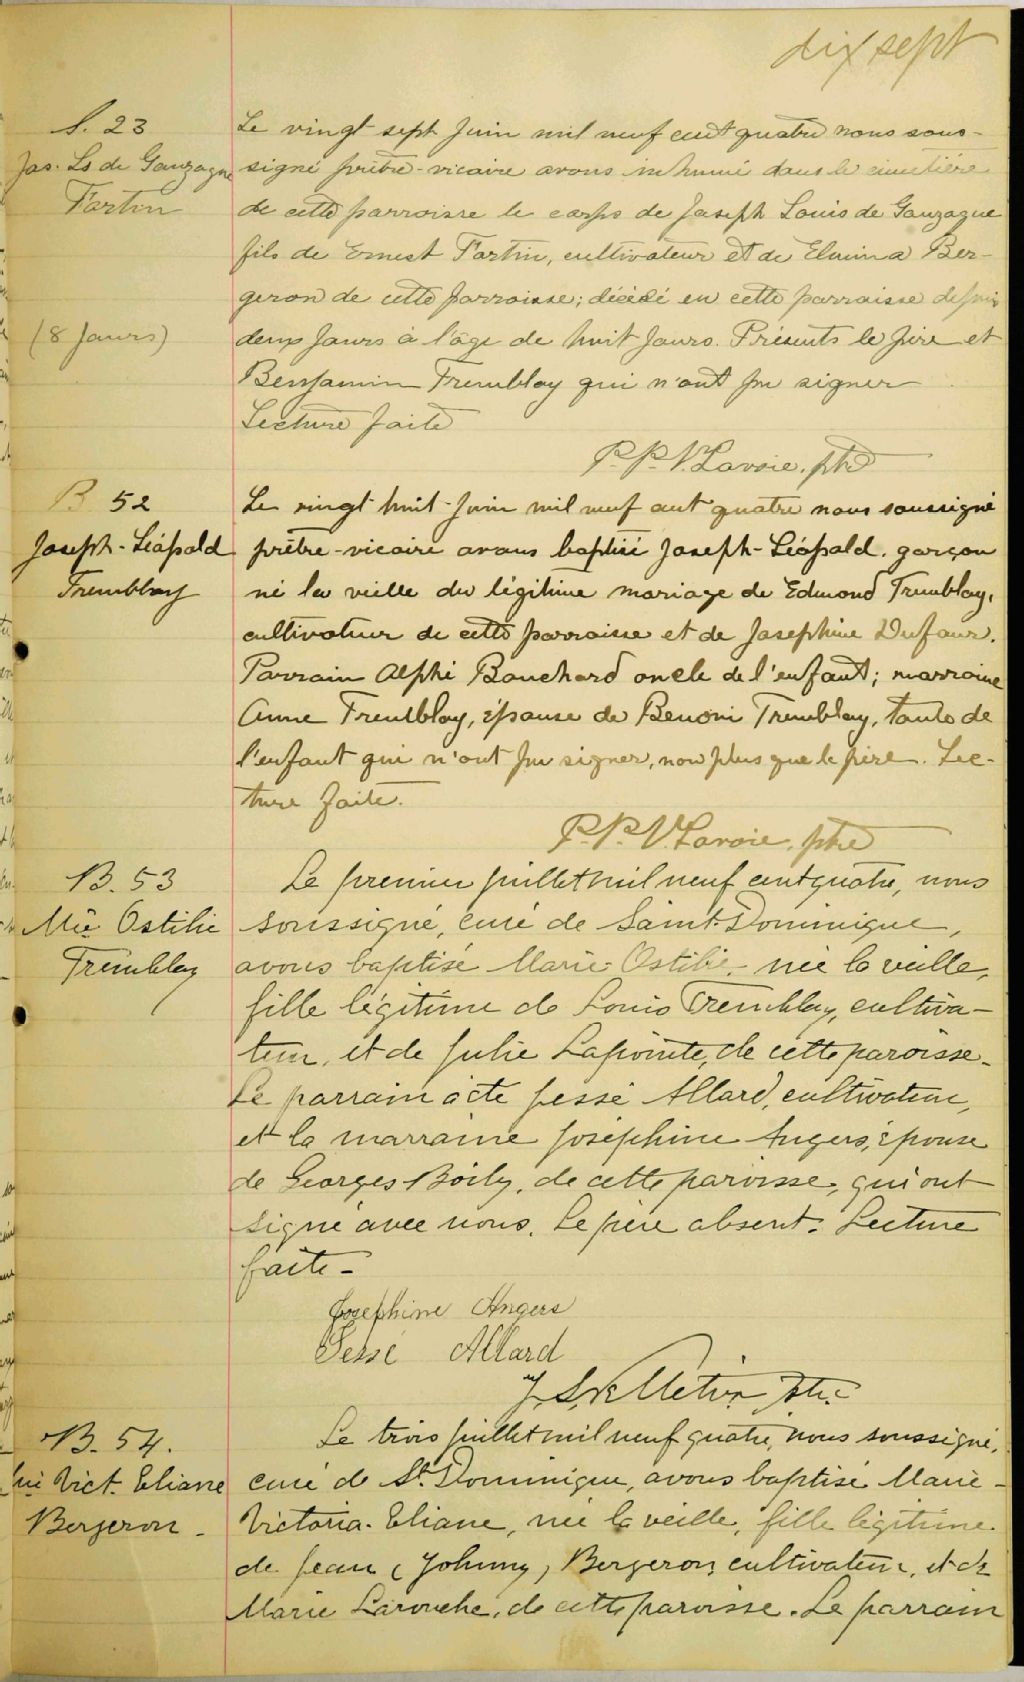 dix sept
S. 23
Jos. Ls de Gonzague
Fortin
(8 jours)
Le vingt sept Juin mil neuf cent quatre nous sous-
signé prêtre-vicaire avons inhumé dans le cimetière
de cette parroisse le corps de Joseph Louis de Gonzague
fils de Ernest Fortin, cultivateur et de Elmina Ber-
geron de cette parroisse; décédé en cette parroisse depuis
deux jours à l'âge de huit jours. Présents le père et
Benjamin Tremblay qui n'ont pu signer
Lecture faite
P.P.V. Lavoie, ptre
B 52
Joseph-Léopold
Tremblay
Le vingt huit Juin mil neuf cent quatre nous soussigné
prêtre-vicaire avons baptisé Joseph-Léopold. garçon
né la vieille du légitime mariage de Edmond Tremblay,
cultivateur de cette parroisse et de Josephine Dufour.
Parrain Alphé Bouchard oncle de l'enfant; marraine
Anne Tremblay, épouse de Benoni Tremblay, tante de
l'enfant qui n'ont pu signer, non plus que le père. Lec-
ture faite.
P.P.V. Lavoie, ptre
B. 53
Mie Ostilie
Tremblay
Le premier juillet mil neuf cent quatre, nous
soussigné, curé de Saint-Dominique,
avons baptisé Marie-Ostilie, née la veille,
fille légitime de Louis Tremblay, cultiva-
teur, et de Julie Lapointe, de cette paroisse.
Le parrain a été Jessé Allard, cultivateur,
et la marraine Joséphine Angers, épouse
de Georges Boily, de cette paroisse, qui ont
signé avec nous. Le père absent. Lecture
faite -
Josephine Angers
Jessé Allard
J. S. Pelletier, ptre
B. 54.
Mie Vict. Eliane
Bergeron -
Le trois juillet mil neuf quatre, nous soussigné,
curé de St. Dominique, avons baptisé Marie-
Victoria-Eliane, née la veille, fille légitime
de Jean (Johnny) Bergeron, cultivateur, et de
Marie Larouche, de cette paroisse. Le parrain